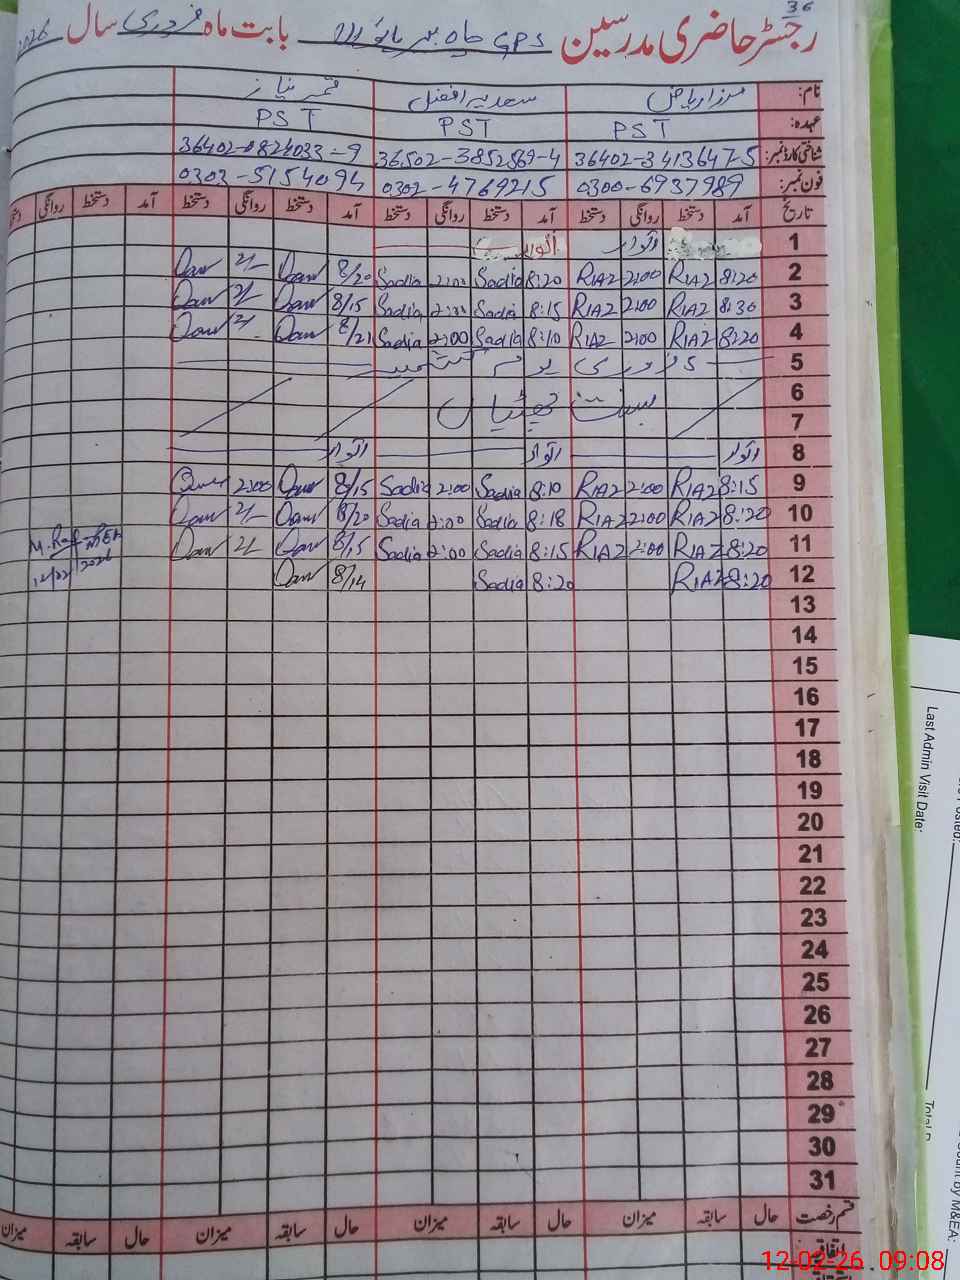 36
رجسٹر حاضری مدرسین GPS چاہ بابت ماہ فروری سال 2026
نام: مرزا ریاض سعدیہ افضل قمر نیاز
عہدہ: PST PST PST
شناختی کارڈ نمبر: 36402-3413647-5 36502-3852569-4 36402-0824033-9
فون نمبر: 0300-6937989 0302-4769215 0303-5154094
تاریخ آمد دستخط روانگی دستخط آمد دستخط روانگی دستخط آمد دستخط روانگی دستخط آمد دستخط روانگی
1 اتوار اتوار
2 8:20 RIAZ 2:00 RIAZ 8:20 Sadia 2:00 Sadia 8/20 2/-
3 8:30 RIAZ 2:00 RIAZ 8:15 Sadia 2:00 Sadia 8/15 2/-
4 8:20 RIAZ 2:00 RIAZ 8:10 Sadia 2:00 Sadia 8/21 2/-
5 5 فروری یوم کشمیر
6
7 بسنت چھٹیاں
8 اتوار اتوار اتوار
9 8:15 RIAZ 2:00 RIAZ 8:10 Sadia 2:00 Sadia 8/15 2:00
10 8:20 RIAZ 2:00 RIAZ 8:18 Sadia 2:00 Sadia 8/20 2/-
11 8:20 RIAZ 2:00 RIAZ 8:15 Sadia 2:00 Sadia 8/15 2/- M. Raf
12 8:20 RIAZ 8:20 Sadia 8/14 12/02/2026
13
14
15
16
17
18
19
20
21
22
23
24
25
26
27
28
29
30
31
قسم رخصت حال سابقہ میزان حال سابقہ میزان حال سابقہ میزان حال سابقہ میزان
اتفاقیہ
Last Admin Visit Date:
12-02-26 09:08